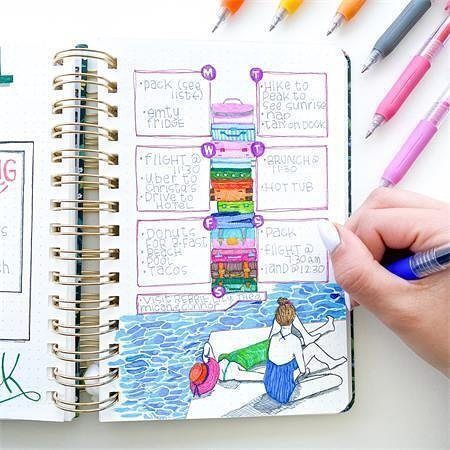 NG
K
M
• pack (see
list←)
• emty
fridge
T
• Hike to
peak to
see sunrise
• nap
• tan on dock
W
• flight @
11:30
• Uber to
Christa's
• Drive to
hotel
T
• Brunch @
11:30
• Hot tub
F
• Donuts
for b-fast
• Beach
• Pool
• Tacos
S
• pack
• flight @
7:30am
land @ 12:30
S